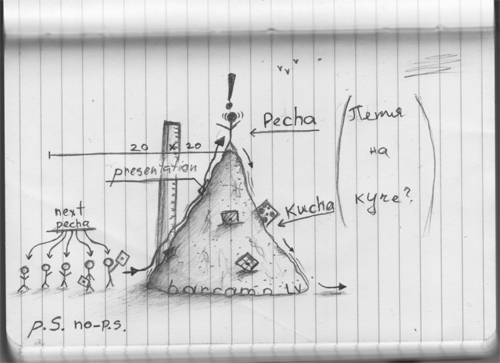 !
Pecha
20 x 20
presentation
Kucha
Петя
на
куче?
next
pecha
barcamp LV
p.s. no-p.s.